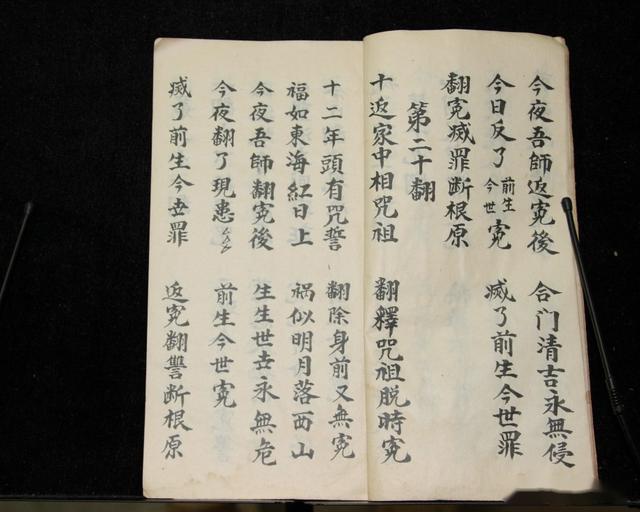 今夜吾師返寃後　合门清吉永無侵
今日反了前生今世寃　滅了前生今世罪
翻寃滅罪断根原
第二十翻
十返家中相咒祖　翻釋咒祖脱時寃
十二年頭有咒誓　翻除身前又無寃
福如東海紅日上　祸似明月落西山
今夜吾師翻寃後　生生世卋永無危
今夜翻了現患　前生今世寃
滅了前生今卋罪　返寃翻讐断根原